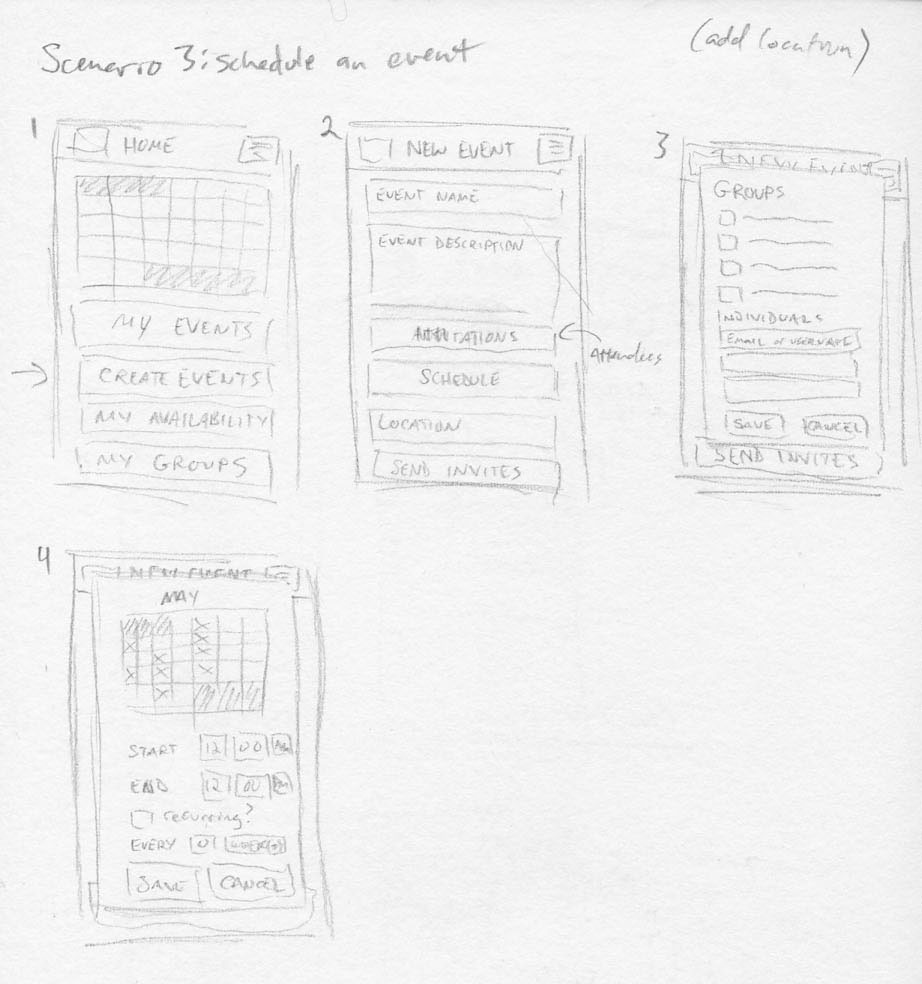 Scenario 3: schedule an event
(add location)
1
HOME
MY EVENTS
CREATE EVENTS
MY AVAILABILITY
MY GROUPS
2
NEW EVENT
EVENT NAME
EVENT DESCRIPTION
Attendees
SCHEDULE
LOCATION
SEND INVITES
3
NEW EVENT
GROUPS
INDIVIDUALS
EMAIL or USERNAME
SAVE CANCEL
SEND INVITES
4
NEW EVENT
MAY
START 12 00
END 12 00
recurring?
EVERY 0 WEEK(S)
SAVE CANCEL